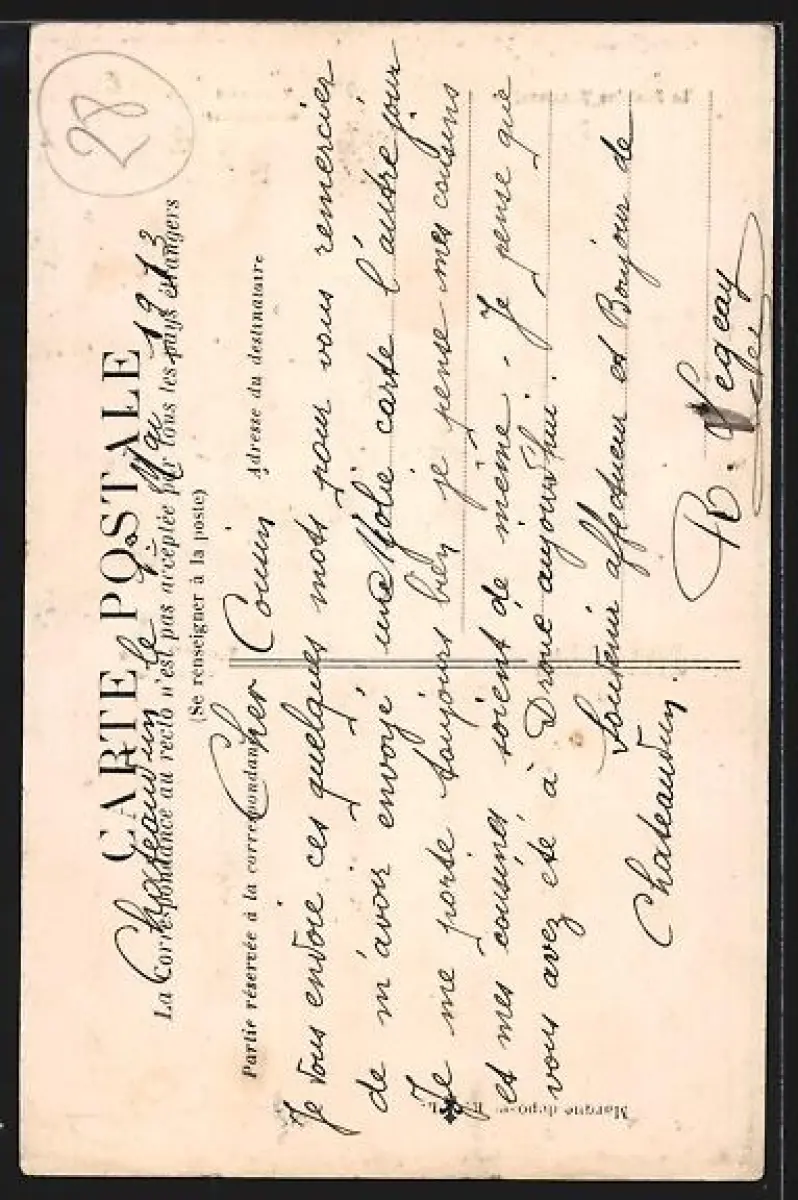 28
CARTE POSTALE
Chateaudun le 9 Mai 1913
La Correspondance au recto n'est pas acceptée par tous les pays étrangers
(Se renseigner à la poste)
Partie réservée à la correspondance
Adresse du destinataire
Cher Cousin
Je vous envoie ces quelques mots pour vous remercier
de m'avoir envoyé une Jolie carte l'autre jour
Je me porte toujours bien je pense mes cousins
et mes cousines soient de même. Je pense que
vous avez eté à Droué aujourd'hui.
Souvenir affectueux et Bonjour de
Chateaudun.
R.
Marque déposée